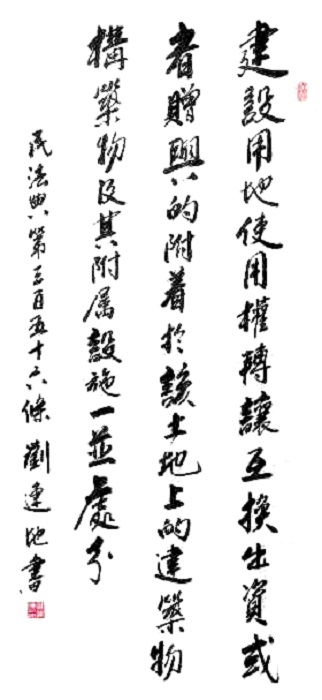 建設用地使用權轉讓互換出資或
者贈與的附着於該土地上的建築物
構築物及其附属設施一並處分
民法典第三百五十六條 劉連地書